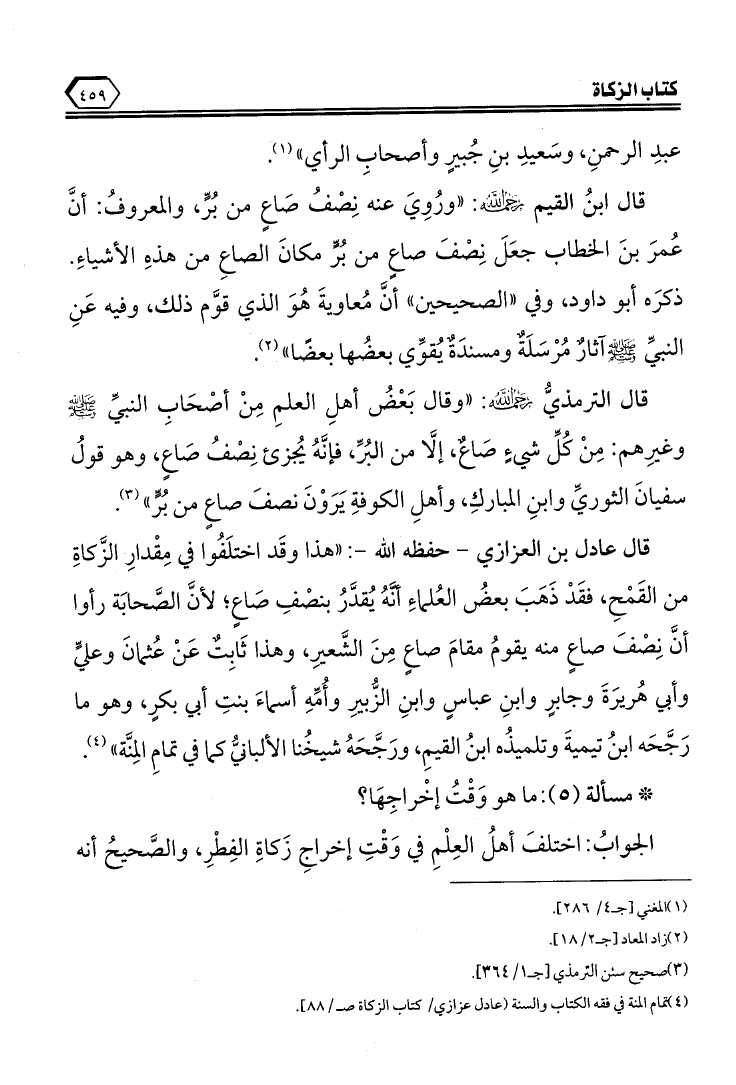 كتاب الزكاة
٤٥٩
عبدِ الرحمنِ، وسَعيدِ بنِ جُبيرٍ وأصحابِ الرأي» (١).
قال ابنُ القيم رَحِمَهُ اللَّهُ: «ورُوِيَ عنه نِصْفُ صَاعٍ من بُرٍّ، والمعروفُ: أنَّ
عُمرَ بنَ الخطاب جعَلَ نِصْفَ صاعٍ من بُرٍّ مكانَ الصاعِ من هذهِ الأشياءِ.
ذكرَه أبو داود، وفي «الصحيحين» أنَّ مُعاويةَ هُوَ الذي قوَّم ذلك، وفيه عَنِ
النبيِّ ﷺ آثارٌ مُرْسَلَةٌ ومسندَةٌ يُقوِّي بعضُها بعضًا» (٢).
قال الترمذيُّ رَحِمَهُ اللَّهُ: «وقال بَعْضُ أهلِ العلمِ مِنْ أصْحَابِ النبيِّ ﷺ
وغيرِهم: مِنْ كُلِّ شيءٍ صَاعٌ، إلَّا من البُرِّ، فإنَّهُ يُجزئ نِصْفُ صَاعٍ، وهو قولُ
سفيانَ الثوريِّ وابنِ المباركِ، وأهلِ الكوفةِ يَرَوْنَ نصفَ صاعٍ من بُرٍّ» (٣).
قال عادل بن العزازي – حفظه الله –: «هذا وقَد اختلَفُوا في مِقْدارِ الزَّكاةِ
من القَمْحِ، فقَدْ ذَهَبَ بعضُ العُلماءِ أنَّهُ يُقدَّرُ بنصْفِ صَاعٍ؛ لأنَّ الصَّحابَة رأوا
أنَّ نِصْفَ صاعٍ منه يقومُ مقامَ صاعٍ مِنَ الشَّعيرِ، وهذا ثَابِتٌ عَنْ عُثمانَ وعليٍّ
وأبي هُريرَةَ وجابرٍ وابنِ عباسٍ وابنِ الزُّبيرِ وأُمِّهِ أسماءَ بنتِ أبي بكرٍ، وهو ما
رَجَّحَه ابنُ تيميةَ وتلميذُه ابنُ القيمِ، ورَجَّحَهُ شيخُنا الألبانيُّ كما في تمامِ المِنَّة» (٤).
* مسألة (٥): ما هو وَقْتُ إخْراجِهَا؟
الجوابُ: اختلفَ أهلُ العِلْمِ في وَقْتِ إخراجِ زَكاةِ الفِطْرِ، والصَّحيحُ أنه
(١) المغني [جـ٤/ ٢٨٦].
(٢) زاد المعاد [جـ٢/ ١٨].
(٣) صحيح سنن الترمذي [جـ١/ ٣٦٤].
(٤) تمام المنة في فقه الكتاب والسنة (عادل عزازي/ كتاب الزكاة صـ/ ٨٨].